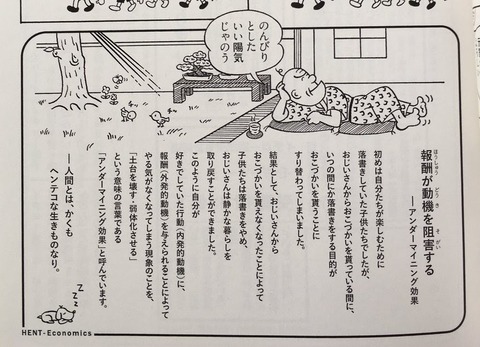 のんびり
とした
いい陽気
じゃのう
報酬が動機を阻害する
ほうしゅう どうき そがい
―アンダーマイニング効果
初めは自分たちが楽しむために
落書きしていた子供たちでしたが、
おじいさんからおこづかいを貰っている間に、
いつの間にか落書きをする目的が
おこづかいを貰うことに
すり替わってしまいました。
結果として、おじいさんから
おこづかいを貰えなくなったことによって
子供たちは落書きをやめ、
おじいさんは静かな暮らしを
取り戻すことができました。
このように自分が
好きでしていた行動(内発的動機)に、
報酬(外発的動機)を与えられることによって
やる気がなくなってしまう現象のことを、
「土台を壊す・弱体化させる」
という意味の言葉である
「アンダーマイニング効果」と呼んでいます。
―人間とは、かくも
ヘンテコな生きものなり。
zzz
HENT-Economics